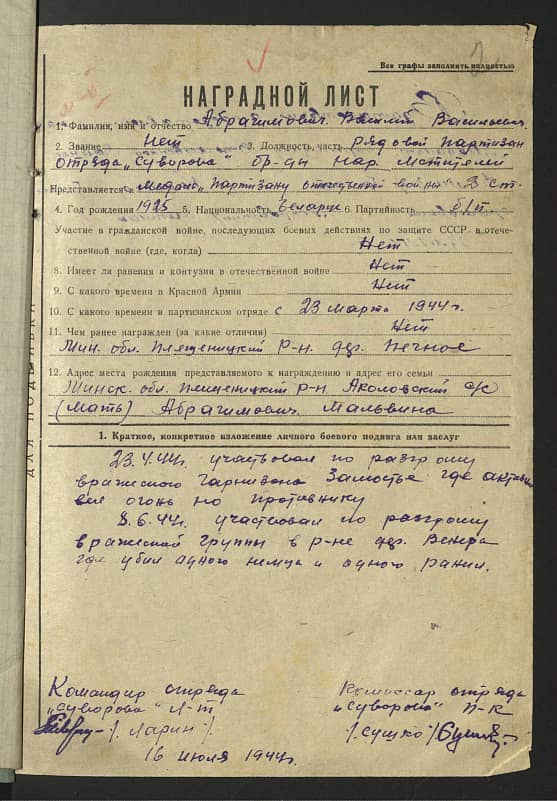 Все графы заполнять полностью
2
НАГРАДНОЙ ЛИСТ
1. Фамилия, имя и отчество Абрагимович Василий Васильевич
2. Звание Нет 3. Должность, часть рядовой партизан
отряда „Суворова" бр-ды Нар. Мстителей
Представляется к медали „Партизану отечественной войны 2 ст.
4. Год рождения 1925 5. Национальность беларус 6. Партийность б/п.
Участие в гражданской войне, последующих боевых действиях по защите СССР и отече-
ственной войне (где, когда) Нет
8. Имеет ли ранения и контузии в отечественной войне Нет
9. С какого времени в Красной Армии Нет
10. С какого времени в партизанском отряде с 23 марта 1944 г.
11. Чем ранее награжден (за какие отличия) Нет
Мин. обл. Плещеницкий р-н. др. Печное
12. Адрес места рождения представляемого к награждению и адрес его семьи
Минск. обл. Плещеницкий р-н Околовский с/с
(Мать) Абрагимович Мальвина
1. Краткое, конкретное изложение личного боевого подвига или заслуг
23.4.44г. участвовал по разгрому
вражеского гарнизона Замостье где активно
вел огонь по противнику
8.6.44г. участвовал по разгрому
вражеской группы в р-не др. Венера
где убил одного немца и одного ранил.
Командир отряда
„Суворова" Л-т
/. Ларин /.
Комиссар отряда
„Суворова" П-к
/. Сушко /
16 июля 1944г.
ДЛЯ ПОДШИВКИ